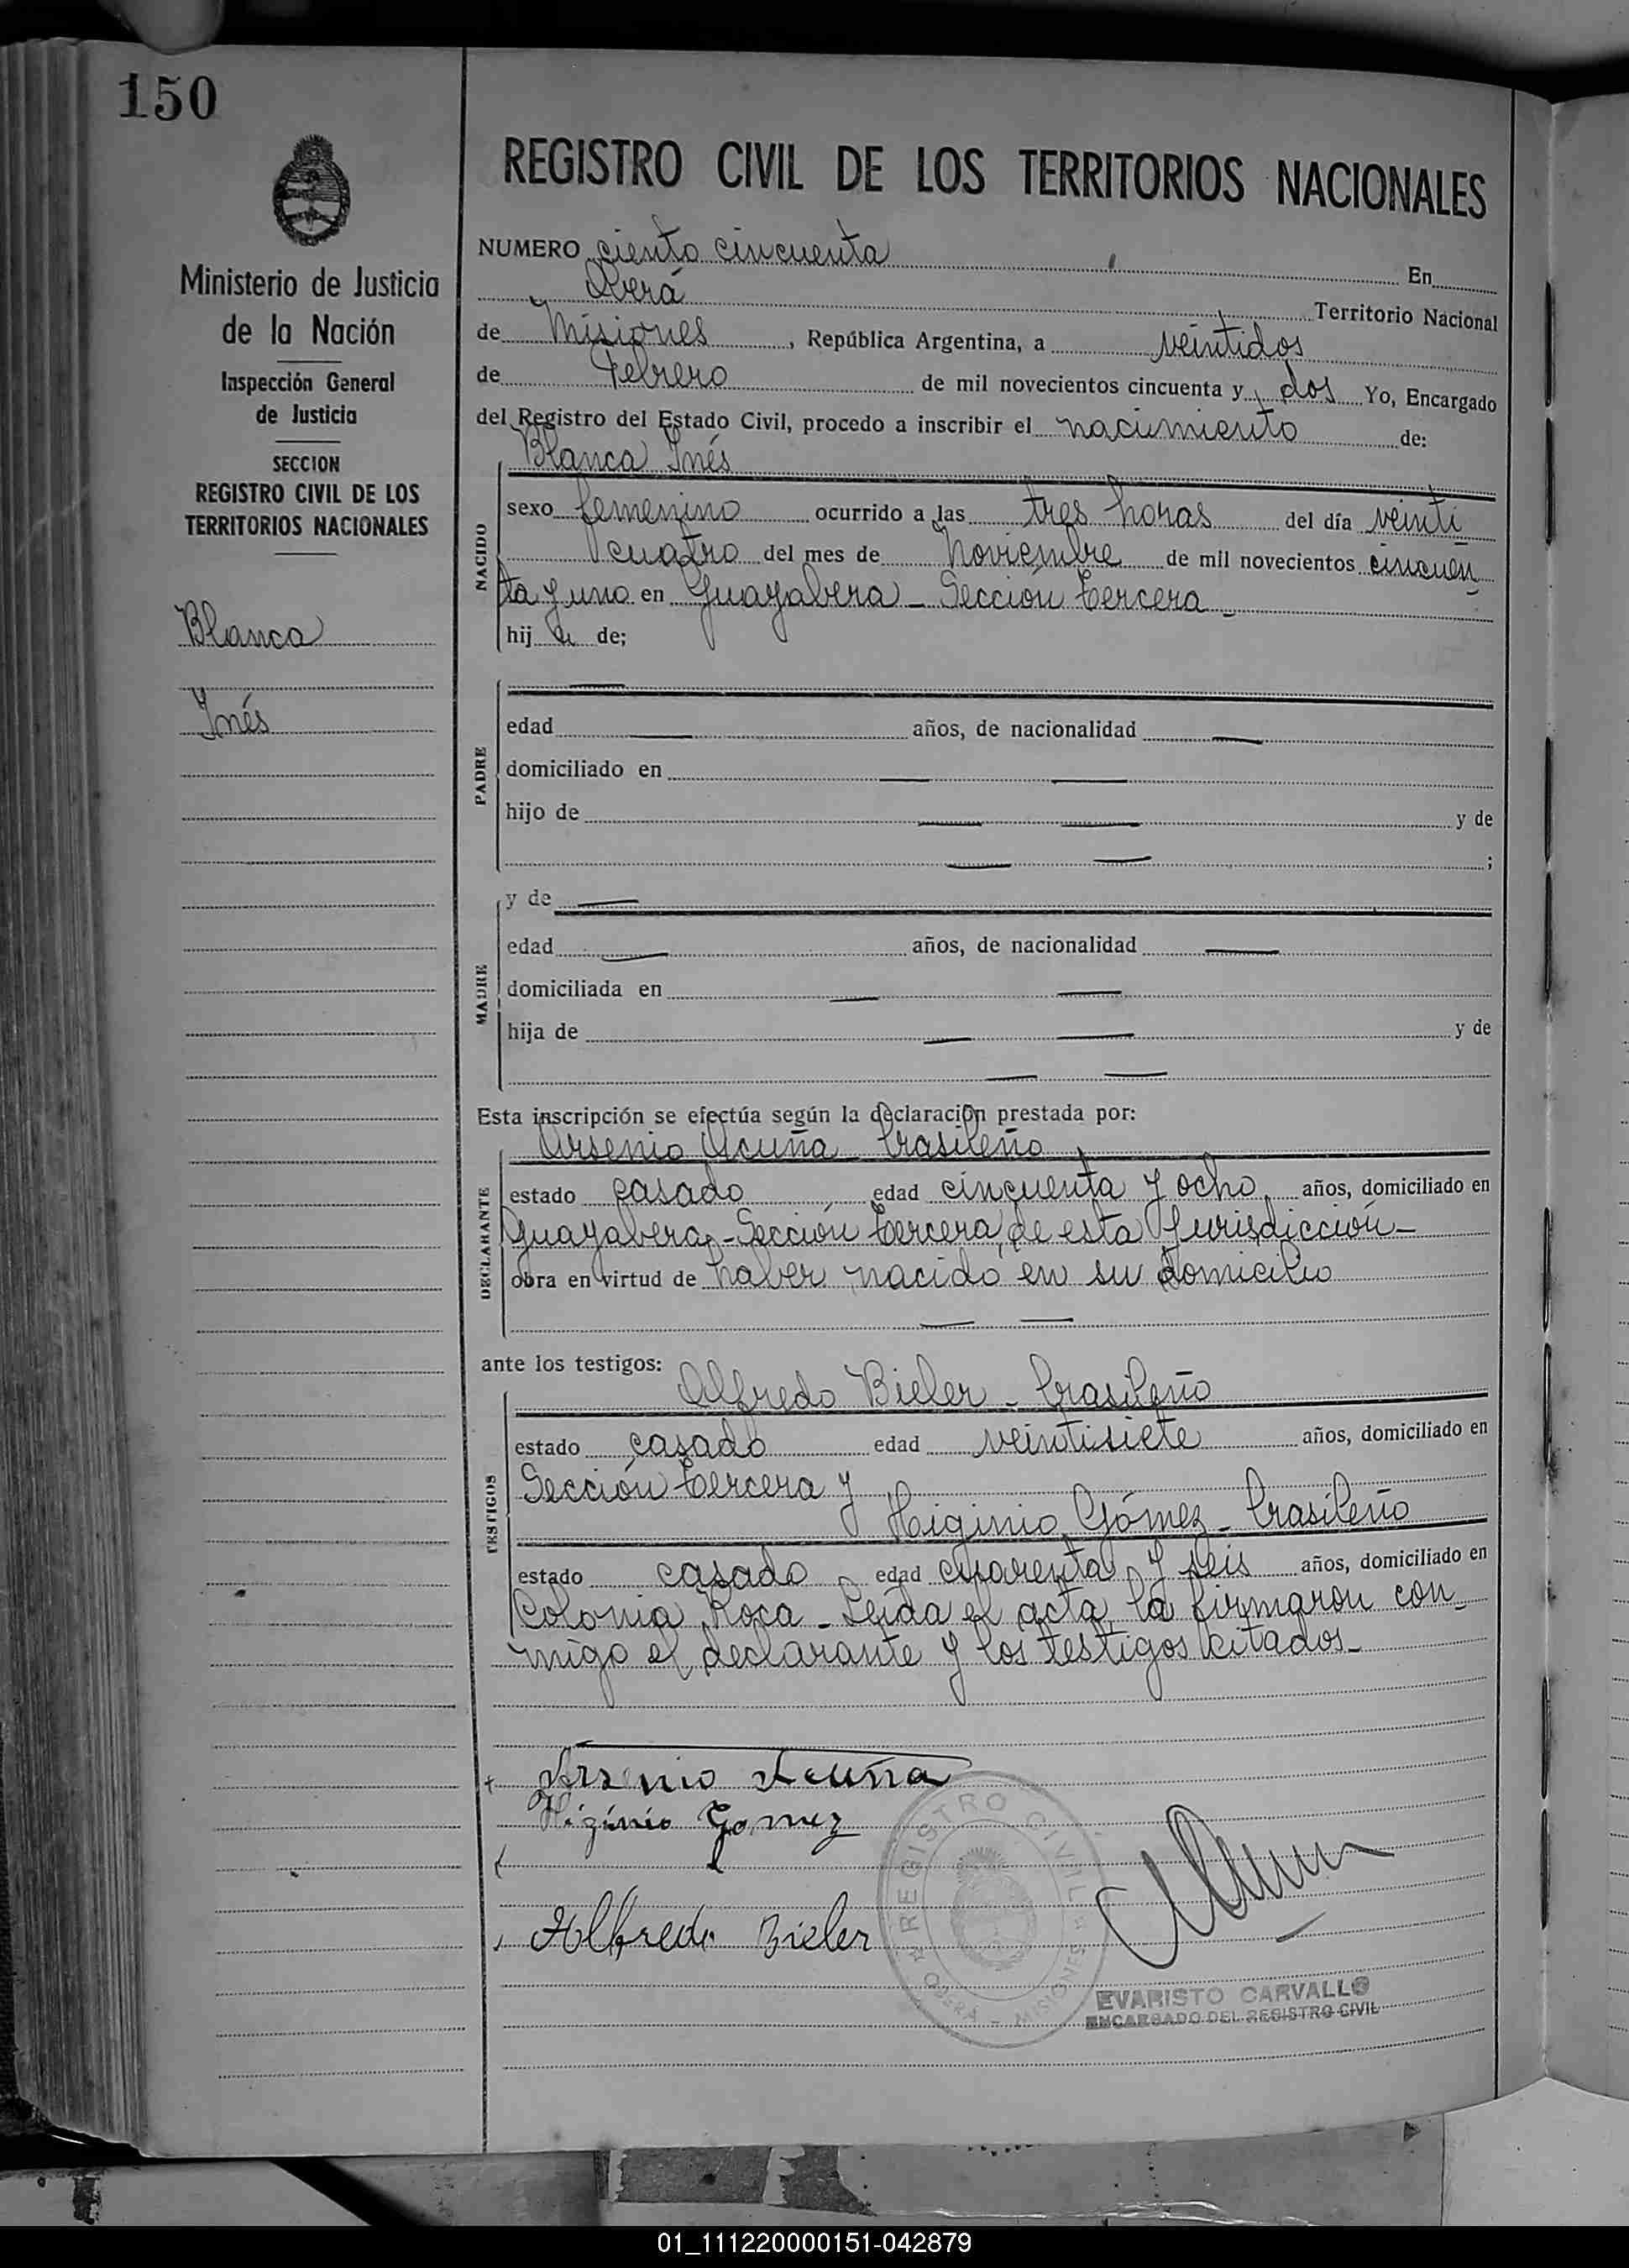 150
REGISTRO CIVIL DE LOS TERRITORIOS NACIONALES
Ministerio de Justicia
de la Nación
Inspección General
de Justicia
SECCION
REGISTRO CIVIL DE LOS
TERRITORIOS NACIONALES
Blanca
Inés
NUMERO ciento cincuenta En
Oberá Territorio Nacional
de Misiones, República Argentina, a veintidos
de Febrero de mil novecientos cincuenta y dos Yo, Encargado
del Registro del Estado Civil, procedo a inscribir el nacimiento de:
Blanca Inés
NACIDO
sexo femenino ocurrido a las tres horas del día veinti
cuatro del mes de Noviembre de mil novecientos cincuen
ta y uno en Guayabera - Sección tercera -
hij a de;
PADRE
edad — años, de nacionalidad —
domiciliado en — —
hijo de — — y de
— — ;
MADRE
y de —
edad — años, de nacionalidad —
domiciliada en — —
hija de — — y de
— —
Esta inscripción se efectúa según la declaración prestada por:
Arsenio Acuña - brasileño
DECLARANTE
estado casado edad cincuenta y ocho años, domiciliado en
Guayabera - Sección tercera, de esta Jurisdicción -
obra en virtud de haber nacido en su domicilio
— —
ante los testigos:
Alfredo Bieler - brasileño
TESTIGOS
estado casado edad veintisiete años, domiciliado en
Sección tercera y
Higinio Gómez - brasileño
estado casado edad cuarenta y seis años, domiciliado en
Colonia Roca - Leída el acta, la firmaron con-
migo el declarante y los testigos citados -
Arsenio Acuña
Higinio Gomez
Alfredo Bieler
REGISTRO CIVIL
OBERÁ - MISIONES
EVARISTO CARVALLO
ENCARGADO DEL REGISTRO CIVIL
01_111220000151-042879